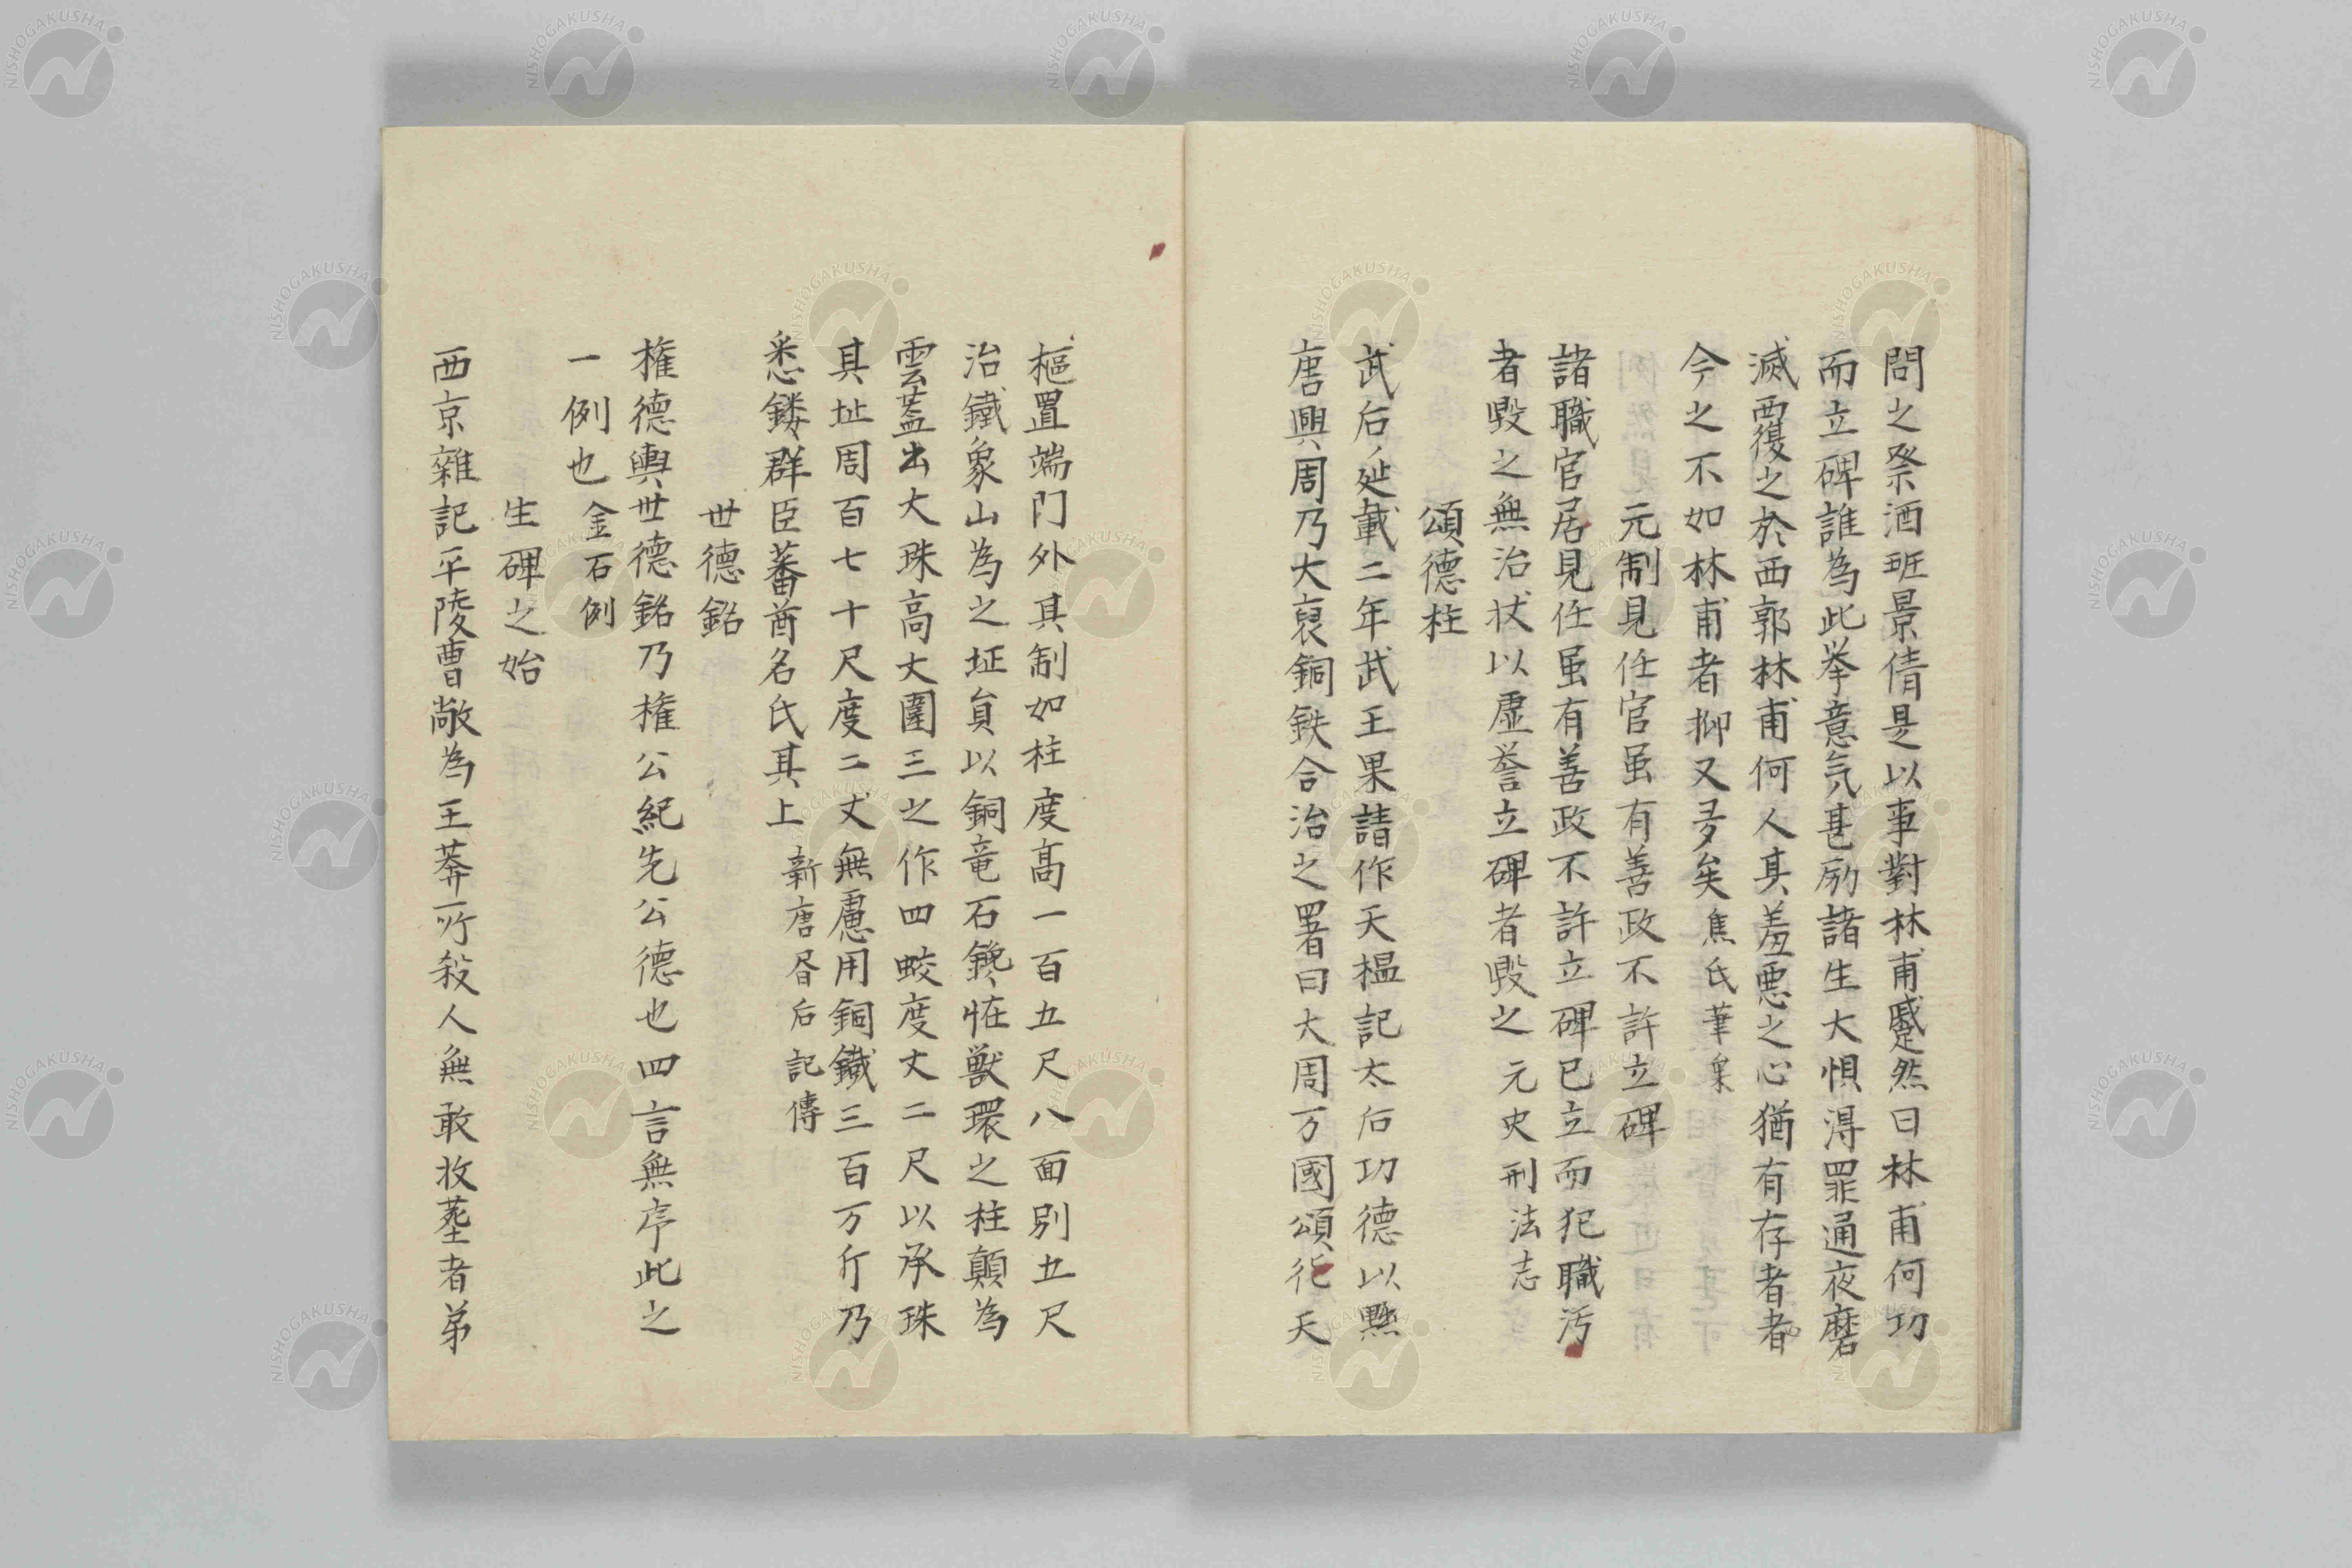 問之祭酒班景倩是以事對林甫蹙然曰林甫何功
而立碑誰為此挙意気甚励諸生大惧得罪通夜磨
滅覆之於西郭林甫何人其羞悪之心猶有存者者
今之不如林甫者抑又多矣焦氏筆乗
元制見任官虽有善政不許立碑
諸職官居見任虽有善政不許立碑已立而犯職汚
者毀之無治状以虚誉立碑者毀之元史刑法志
頌徳柱
武后延載二年武王果請作天樞記太后功徳以黙
唐興周乃大裒銅鉄合冶之署曰大周万國頌徳天
樞置端門外其制如柱度髙一百五尺八面別五尺
冶鐵象山為之址負以銅竜石鑱恠獣環之柱顛為
雲蓋出大珠高丈圍三之作四蛟度丈二尺以承珠
其址周百七十尺度二丈無慮用銅鐵三百万斤乃
悉鏤群臣蕃酋名氏其上新唐昏后記傳
世徳銘
権徳輿世徳銘乃権公紀先公徳也四言無序此之
一例也金石例
生碑之始
西京雜記平陵曹敞為王莽所殺人無敢收塟者弟
NISHOGAKUSHA